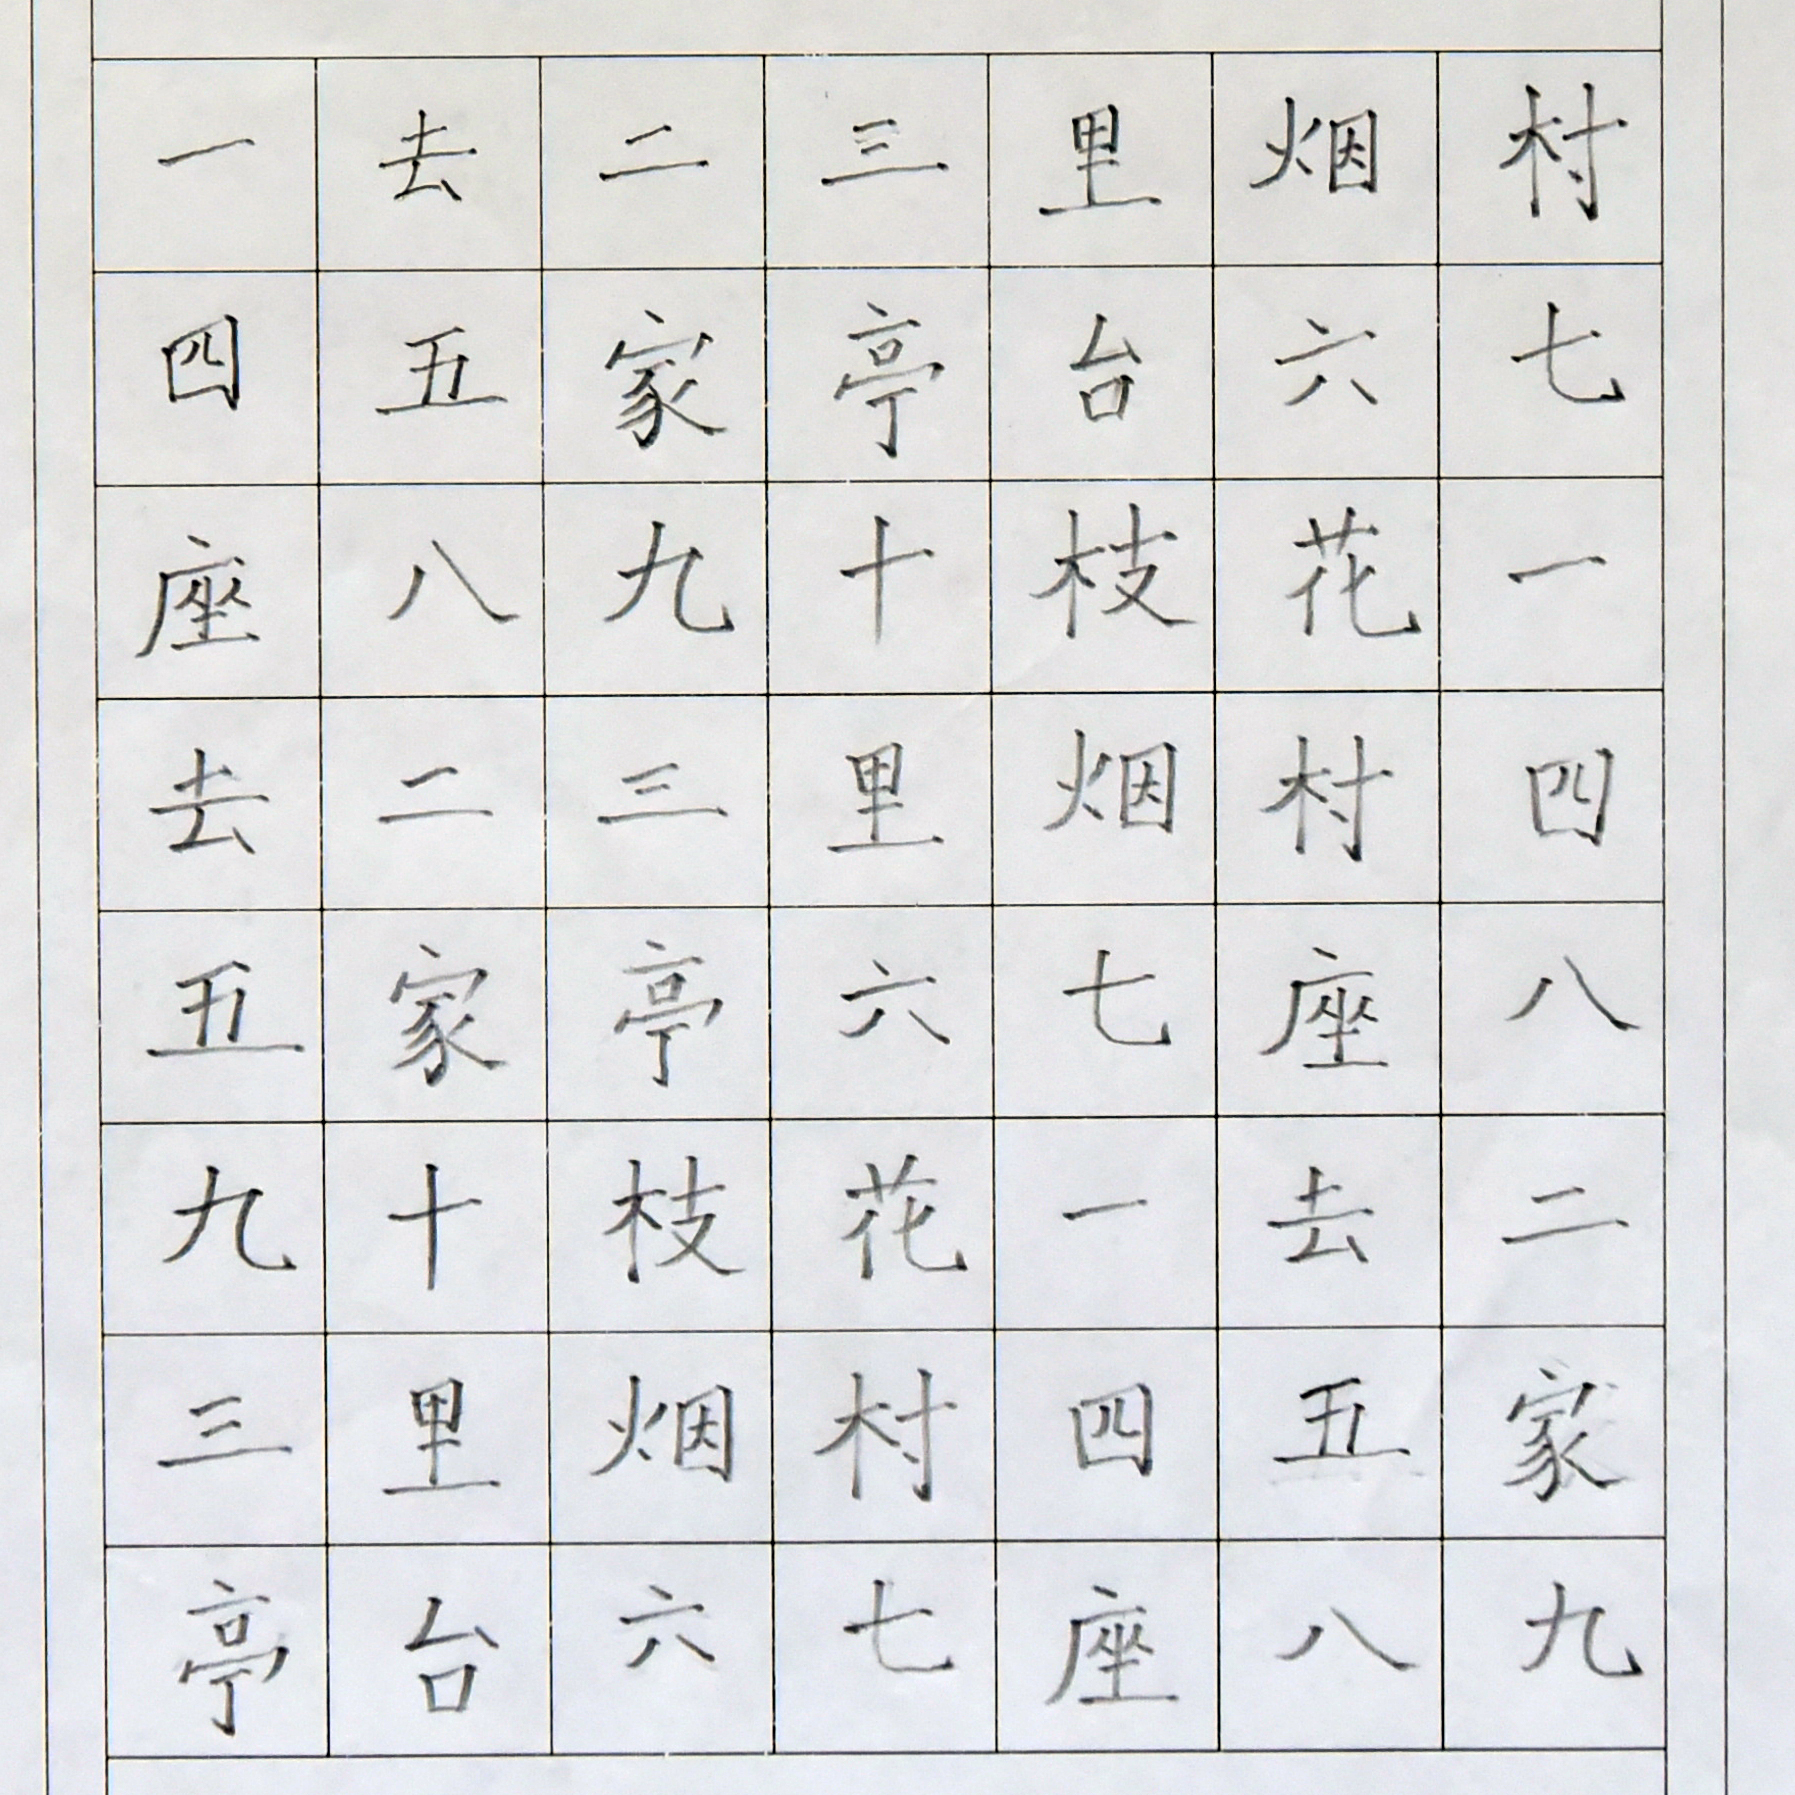 一去二三里烟村
四五家亭台六七
座八九十枝花一
去二三里烟村四
五家亭六七座八
九十枝花一去二
三里烟村四五家
亭台六七座八九